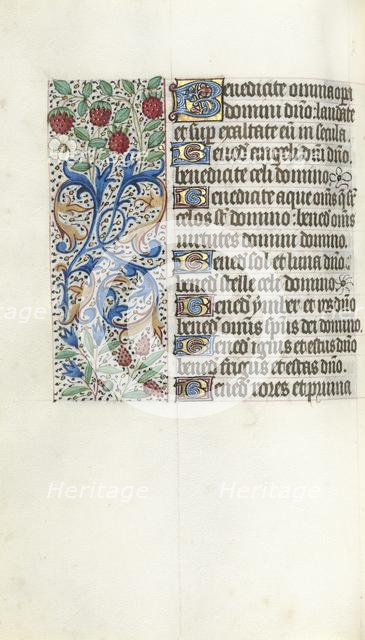 Benedicite omnia opa
domini dño: laudate
et sup exaltate eū in secula.
Bened angeli dñi dño.
benedicite celi domino
Benedicite aque oīns q̄ sr̄
celos st̄ domino: bened oīns
virtutes domini domino.
Bened sol et luna dño:
bened stelle celi domino.
Bened ymber et ros dño
bened omīs sp̄us dei domino.
Bened ignis et estus dño
bened frigus et estas dño.
Bened rores et pruina
Heritage Heritage